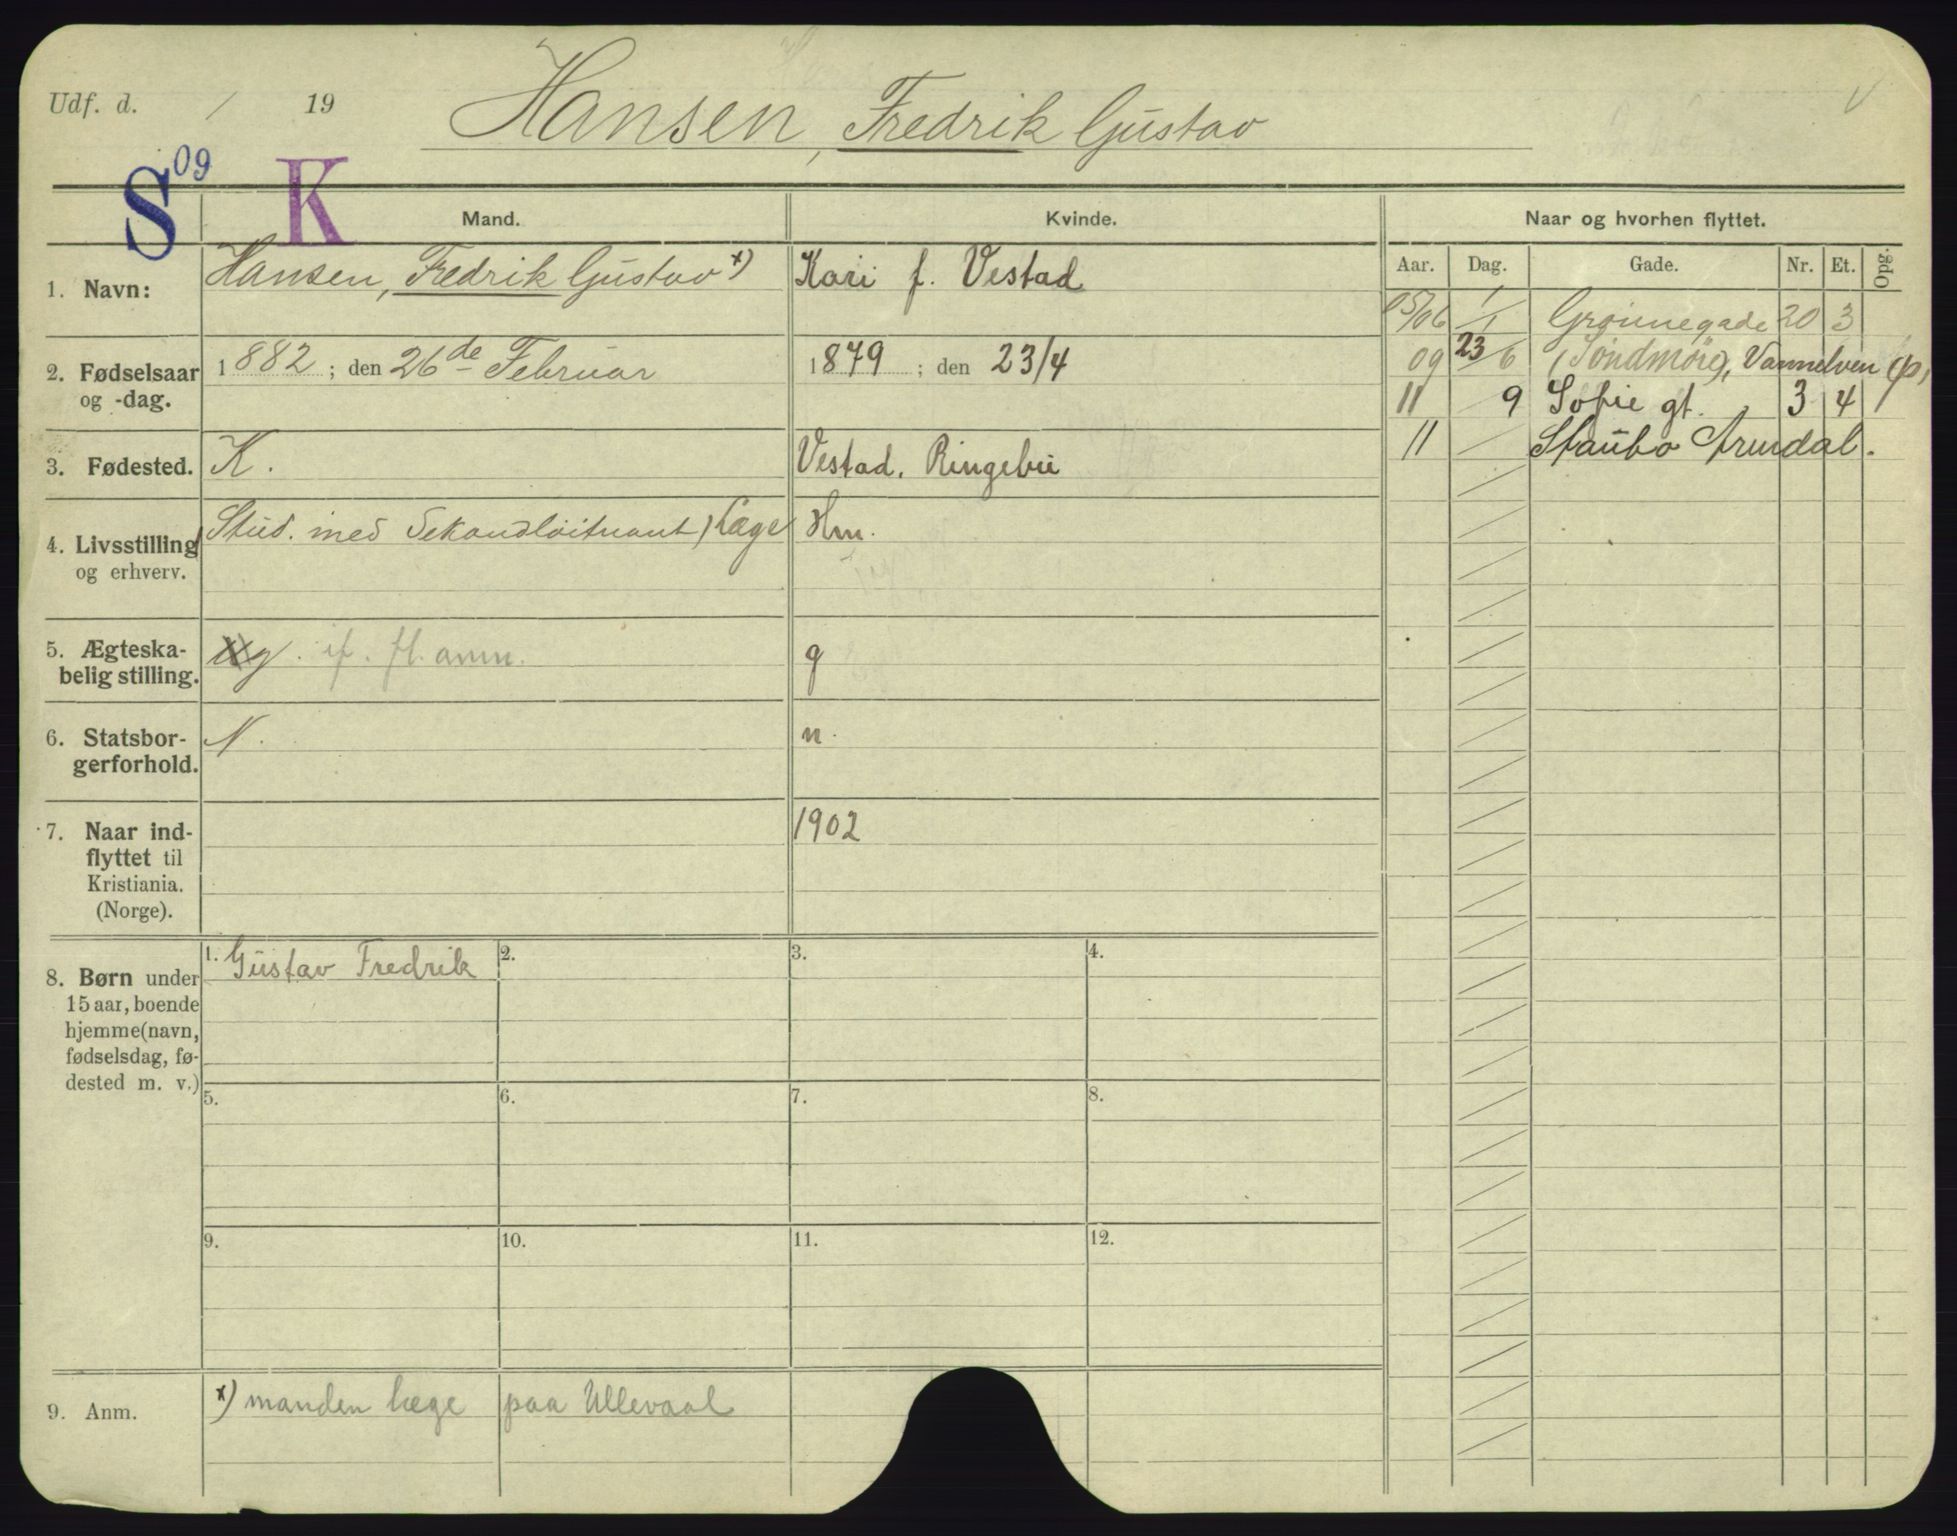 Udf. d. / 19
Hansen, Fredrik Gustav
S 09 K
Mand. Kvinde. Naar og hvorhen flyttet.
Aar. Dag. Gade. Nr. Et. Opg.
1. Navn: Hansen, Fredrik Gustav x) Kari f. Vestad
05/06 1/1 Grønnegade 20 3
2. Fødselsaar og -dag. 1882; den 26de Februar 1879; den 23/4
09 23/6 (Søndmøre), Vannelven (p)
11 9 Sofie gt. 3 4
3. Fødested. K. Vestad, Ringebu
11 / Staubo Arendal.
4. Livsstilling og erhverv. Stud. med Sekondløitnant) Læge Hm.
5. Ægteska-
belig stilling. g. if. fl. anm. g
6. Statsbor-
gerforhold. N. n.
7. Naar ind-
flyttet til
Kristiania.
(Norge).
1902
8. Børn under
15 aar, boende
hjemme (navn,
fødselsdag, fø-
dested m. v.)
1. Gustav Fredrik 2. 3. 4.
5. 6. 7. 8.
9. 10. 11. 12.
9. Anm. x) manden læge paa Ullevaal